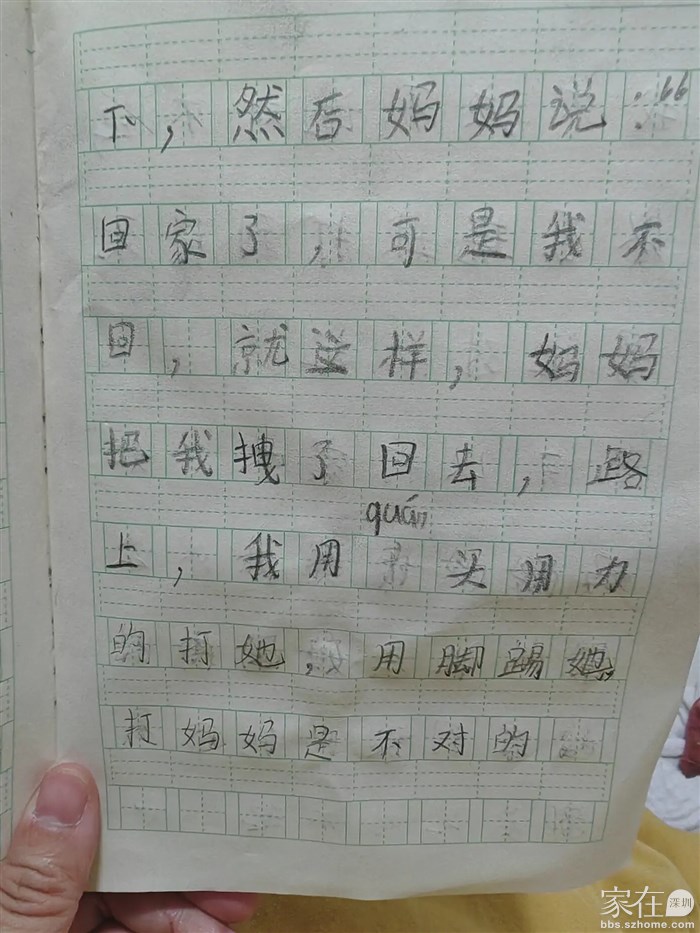 下，然后妈妈说：“
回家了，可是我不
回，就这样，妈妈
把我拽了回去，路
quán
上，我用 头用力
的打她，用脚踢她，
打妈妈是不对的
家在深圳
bbs.szhome.com